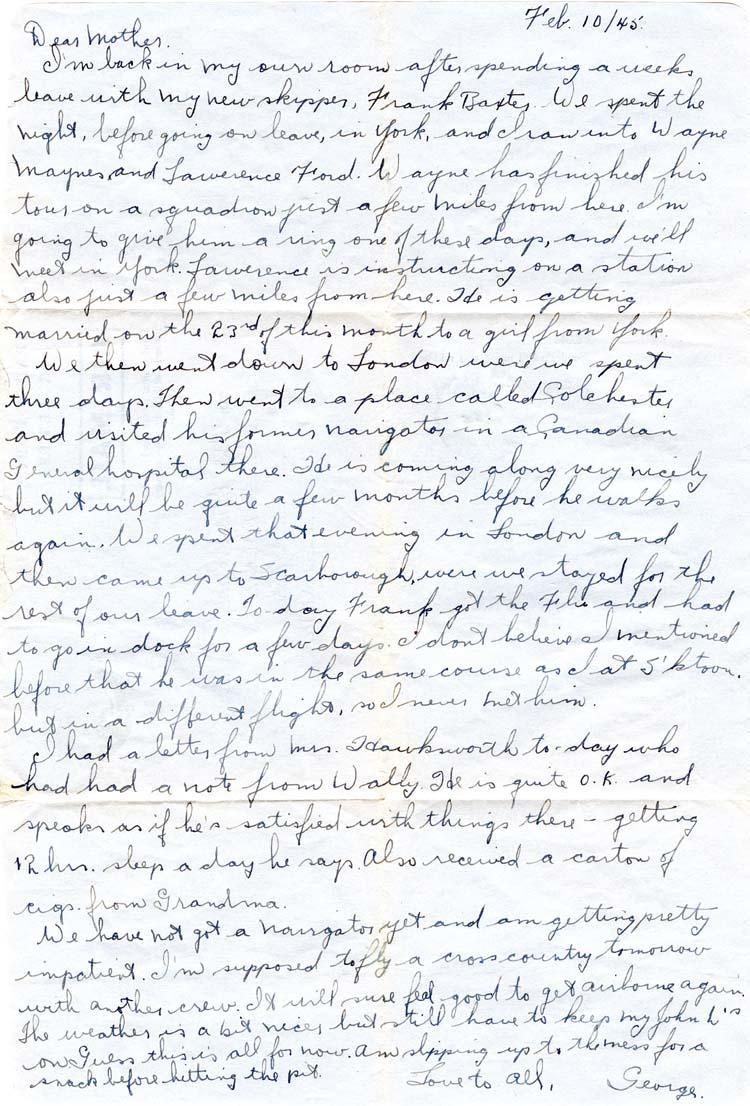 Feb. 10/45.
Dear Mother.
I'm back in my own room after spending a weeks
leave with my new skipper, Frank Baxter. We spent the
night, before going on leave, in York, and I ran into Wayne
Maynes and Lawerence Ford. Wayne has finished his
tour on a squadron just a few miles from here. I'm
going to give him a ring one of these days, and we'll
meet in York. Lawerence is instructing on a station
also just a few miles from here. He is getting
married on the 23rd of this month to a girl from York.
We then went down to London were we spent
three days. Then went to a place called Colchester
and visited his former navigator in a Canadian
General hospital there. He is coming along very nicely
but it will be quite a few months before he walks
again. We spent that evening in London and
then came up to Scarborough, were we stayed for the
rest of our leave. To-day Frank got the Flu and had
to go in dock for a few days. I don't believe I mentioned
before that he was in the same course as I at S'ktoon.
but in a different flight, so I never met him.
I had a letter from Mrs. Hawksworth to-day who
had had a note from Wally. He is quite O.K. and
speaks as if he's satisfied with things there - getting
12 hrs. sleep a day he says. Also received a carton of
cigs. from Grandma.
We have not got a navigator yet and am getting pretty
impatient. I'm supposed to fly a cross country tomorrow
with another crew. It will sure feel good to get airborne again.
The weather is a bit nicer but still have to keep my John L's
on. Guess this is all for now. Am slipping up to the mess for a
snack before hitting the pit.
Love to All,
George.